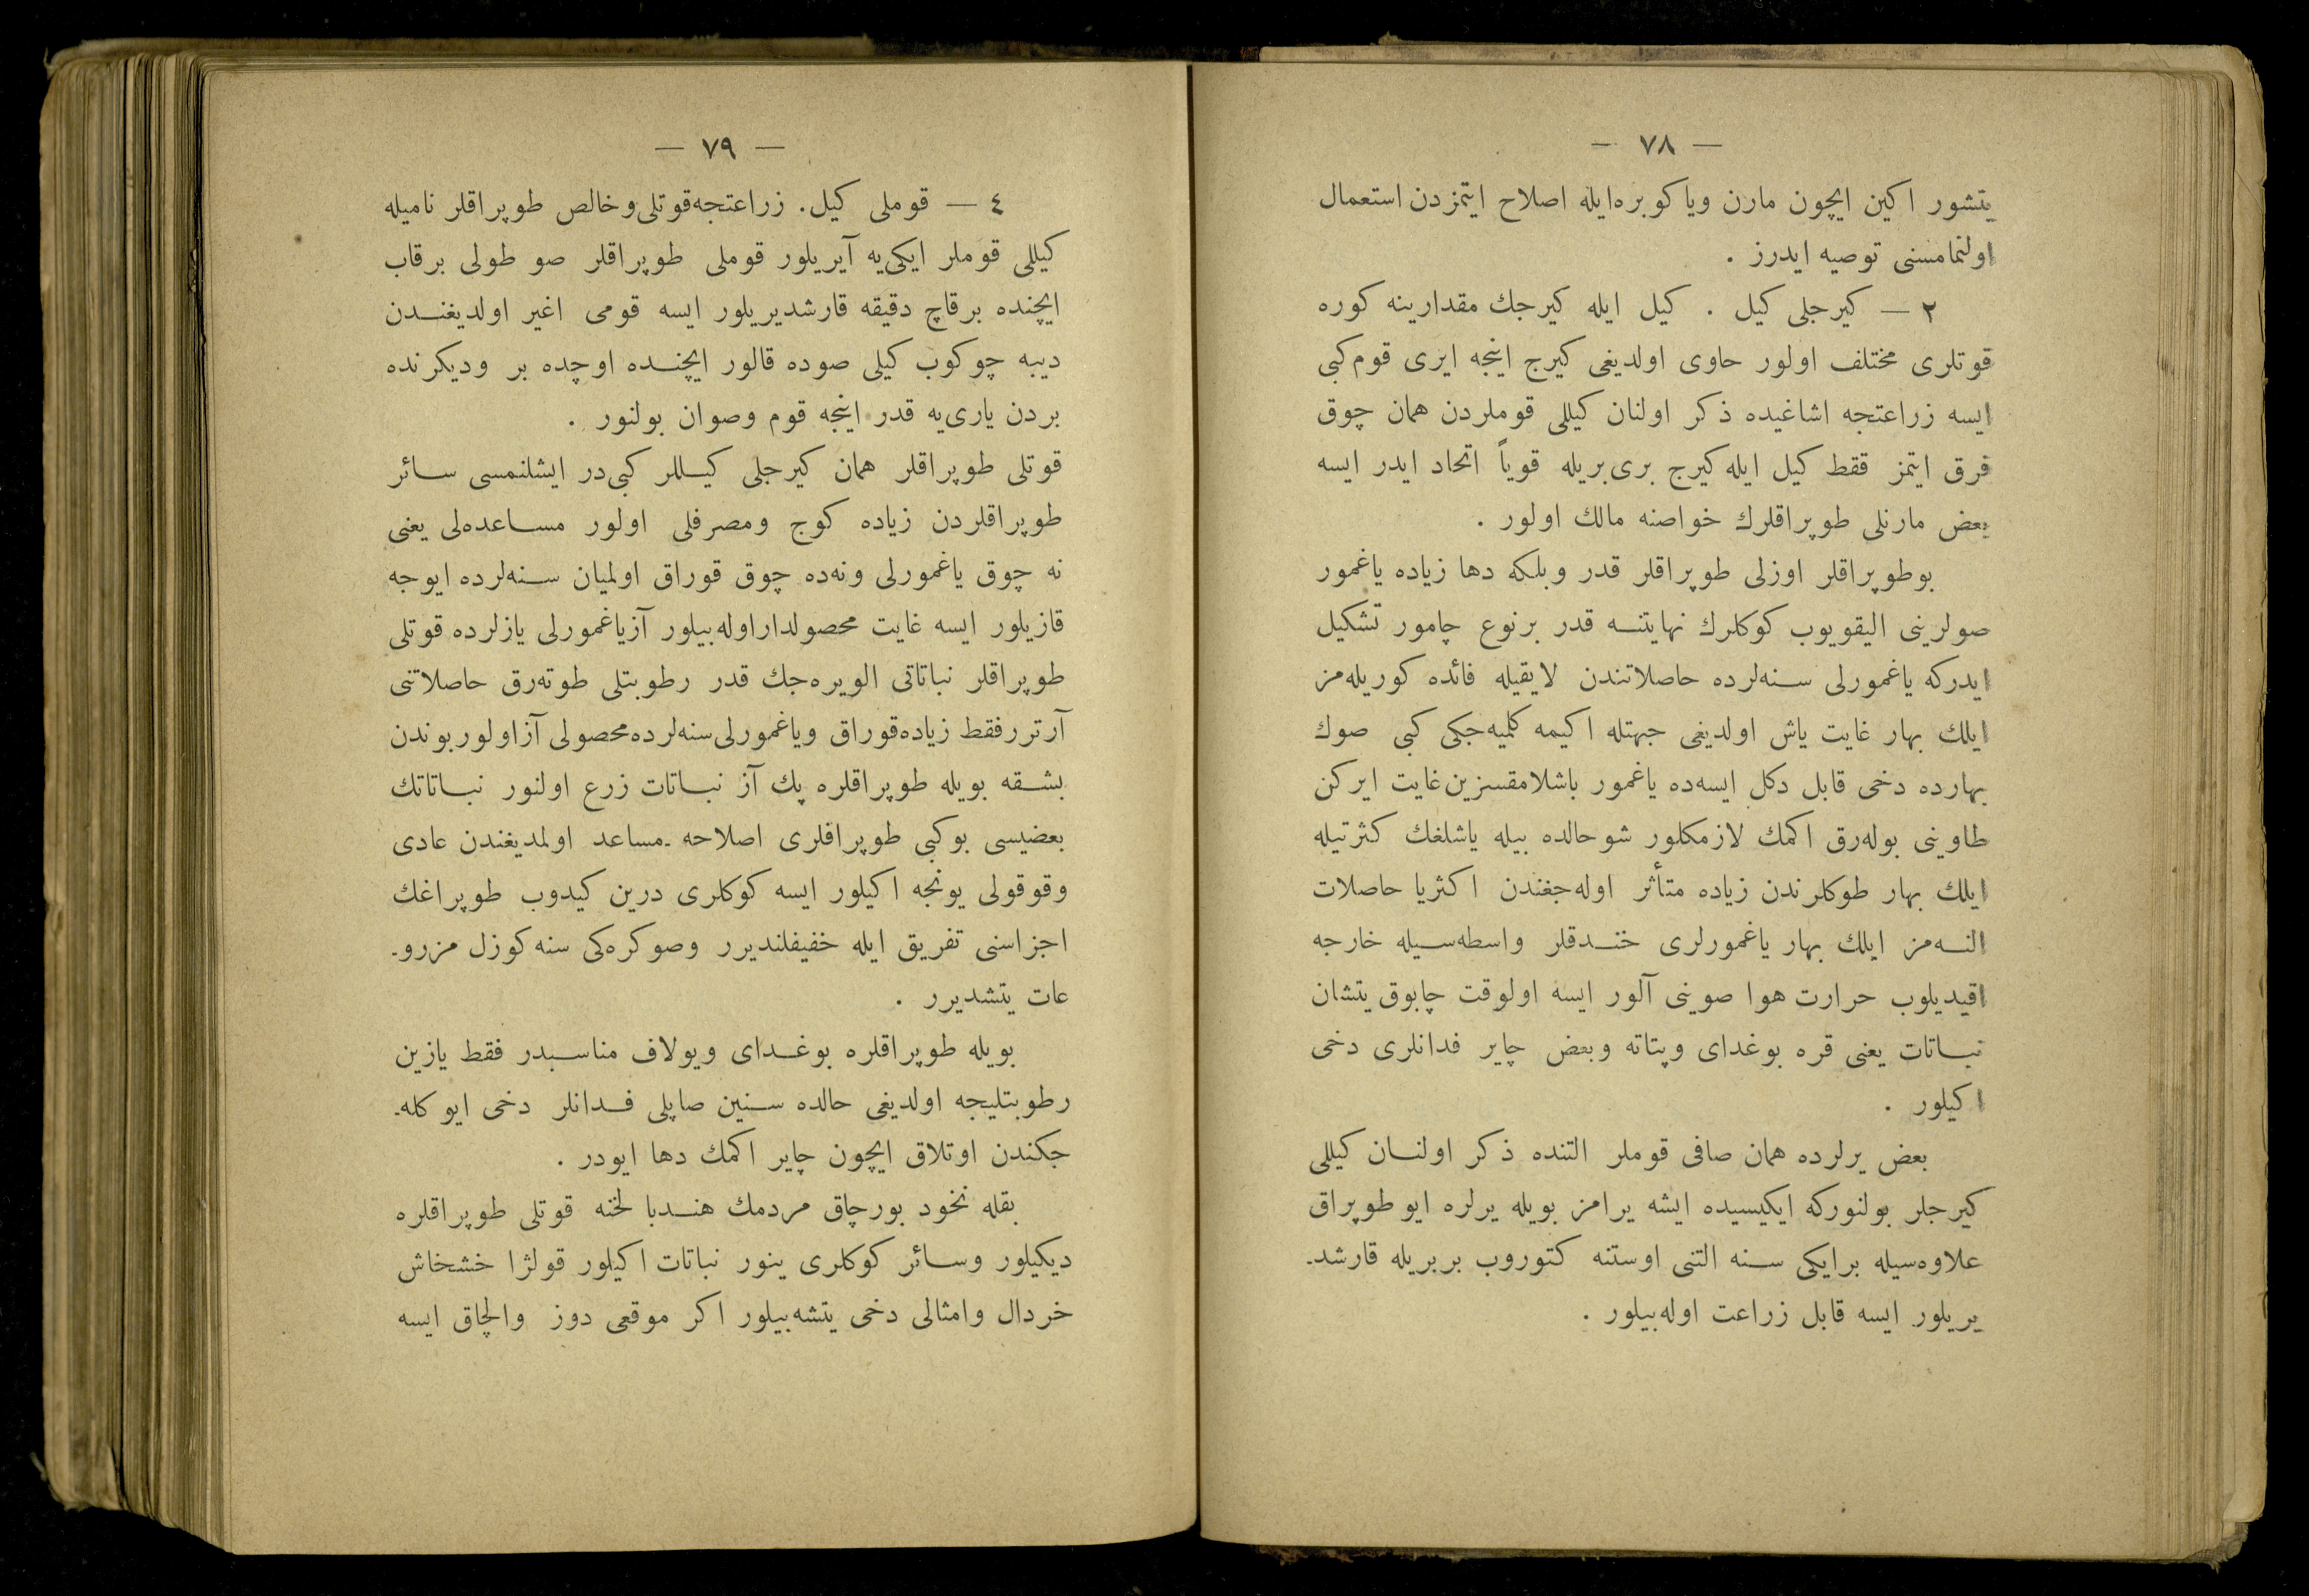 — ٧٨ —
يتشور اكين ايچون مارن ويا كوبره‌ايله اصلاح ايتمزدن استعمال
اولنمامسنى توصيه ايدرز .
٢ — كيرجلى كيل . كيل ايله كيرجك مقدارينه كوره
قوتلرى مختلف اولور حاوى اولديغى كيرج اينجه ايرى قوم كبى
ايسه زراعتجه اشاغيده ذكر اولنان كيللى قوملردن همان چوق
فرق ايتمز فقط كيل ايله كيرج برى بريله قوياً اتحاد ايدر ايسه
بعض مارنلى طوپراقلرك خواصنه مالك اولور .
بوطوپراقلر اوزلى طوپراقلر قدر وبلكه دها زياده ياغمور
صولرينى اليقويوب كوكلرك نهايتنه قدر برنوع چامور تشكيل
ايدركه ياغمورلى سنه‌لرده حاصلاتندن لايقيله فائده كوريله‌مز
ايلك بهار غايت ياش اولديغى جهتله اكيمه كلميه‌جكى كبى صوك
بهارده دخى قابل دكل ايسه‌ده ياغمور باشلامقسزين غايت ايركن
طاوينى بوله‌رق اكمك لازمكلور شوحالده بيله ياشلغك كثرتيله
ايلك بهار طوكلرندن زياده متأثر اوله‌جغندن اكثريا حاصلات
النه‌مز ايلك بهار ياغمورلرى خندقلر واسطه‌سيله خارجه
اقيديلوب حرارت هوا صوينى آلور ايسه اولوقت چابوق يتشان
نباتات يعنى قره بوغداى وپتاته وبعض چاير فدانلرى دخى
اكيلور .
بعض يرلرده همان صافى قوملر التنده ذكر اولنان كيللى
كيرجلر بولنوركه ايكيسيده ايشه يرامز بويله يرلره ايو طوپراق
علاوه‌سيله برايكى سنه التنى اوستنه كتوروب بربريله قارشد-
يريلور ايسه قابل زراعت اوله‌بيلور .
— ٧٩ —
٤ — قوملى كيل. زراعتجه‌قوتلى‌وخالص طوپراقلر ناميله
كيللى قوملر ايكى‌يه آيريلور قوملى طوپراقلر صو طولى برقاب
ايچنده برقاچ دقيقه قارشديريلور ايسه قومى اغير اولديغندن
ديبه چوكوب كيلى صوده قالور ايچنده اوچده بر وديكرنده
بردن يارى‌يه قدر اينجه قوم وصوان بولنور .
قوتلى طوپراقلر همان كيرجلى كيللر كبى‌در ايشلنمسى سائر
طوپراقلردن زياده كوج ومصرفلى اولور مساعده‌لى يعنى
نه چوق ياغمورلى ونه‌ده چوق قوراق اولميان سنه‌لرده ايوجه
قازيلور ايسه غايت محصولداراوله‌بيلور آزياغمورلى يازلرده قوتلى
طوپراقلر نباتاتى الويره‌جك قدر رطوبتلى طوته‌رق حاصلاتنى
آرتررفقط زياده‌قوراق وياغمورلى‌سنه‌لرده‌محصولى آزاولوربوندن
بشقه بويله طوپراقلره پك آز نباتات زرع اولنور نباتاتك
بعضيسى بوكبى طوپراقلرى اصلاحه مساعد اولمديغندن عادى
وقوقولى يونجه اكيلور ايسه كوكلرى درين كيدوب طوپراغك
اجزاسنى تفريق ايله خفيفلنديرر وصوكره‌كى سنه كوزل مزرو-
عات يتشديرر .
بويله طوپراقلره بوغداى ويولاف مناسبدر فقط يازين
رطوبتليجه اولديغى حالده سنين صاپلى فدانلر دخى ايو كله-
جكندن اوتلاق ايچون چاير اكمك دها ايودر .
بقله نخود بورچاق مردمك هندبا لخنه قوتلى طوپراقلره
ديكيلور وسائر كوكلرى ينور نباتات اكيلور قولژا خشخاش
خردال وامثالى دخى يتشه‌بيلور اكر موقعى دوز والچاق ايسه